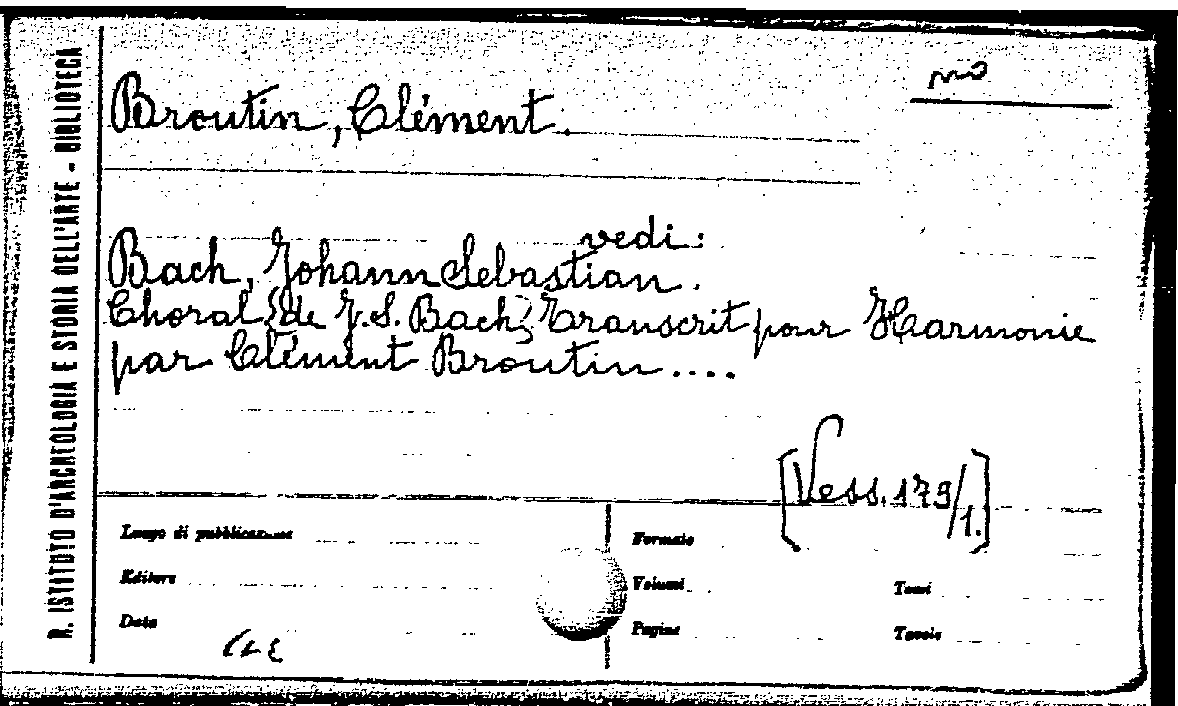 R. ISTITUTO D'ARCHEOLOGIA E STORIA DELL'ARTE - BIBLIOTECA
Broutin, Clément.
vedi:
Bach, Johann Sebastian.
Choral [de J. S. Bach] Transcrit pour Harmonie
par Clément Broutin....
[Vess. 179/1.]
Luogo di pubblicazione
Editore
Data
Formato
Volumi
Tomi
Pagine
Tavole